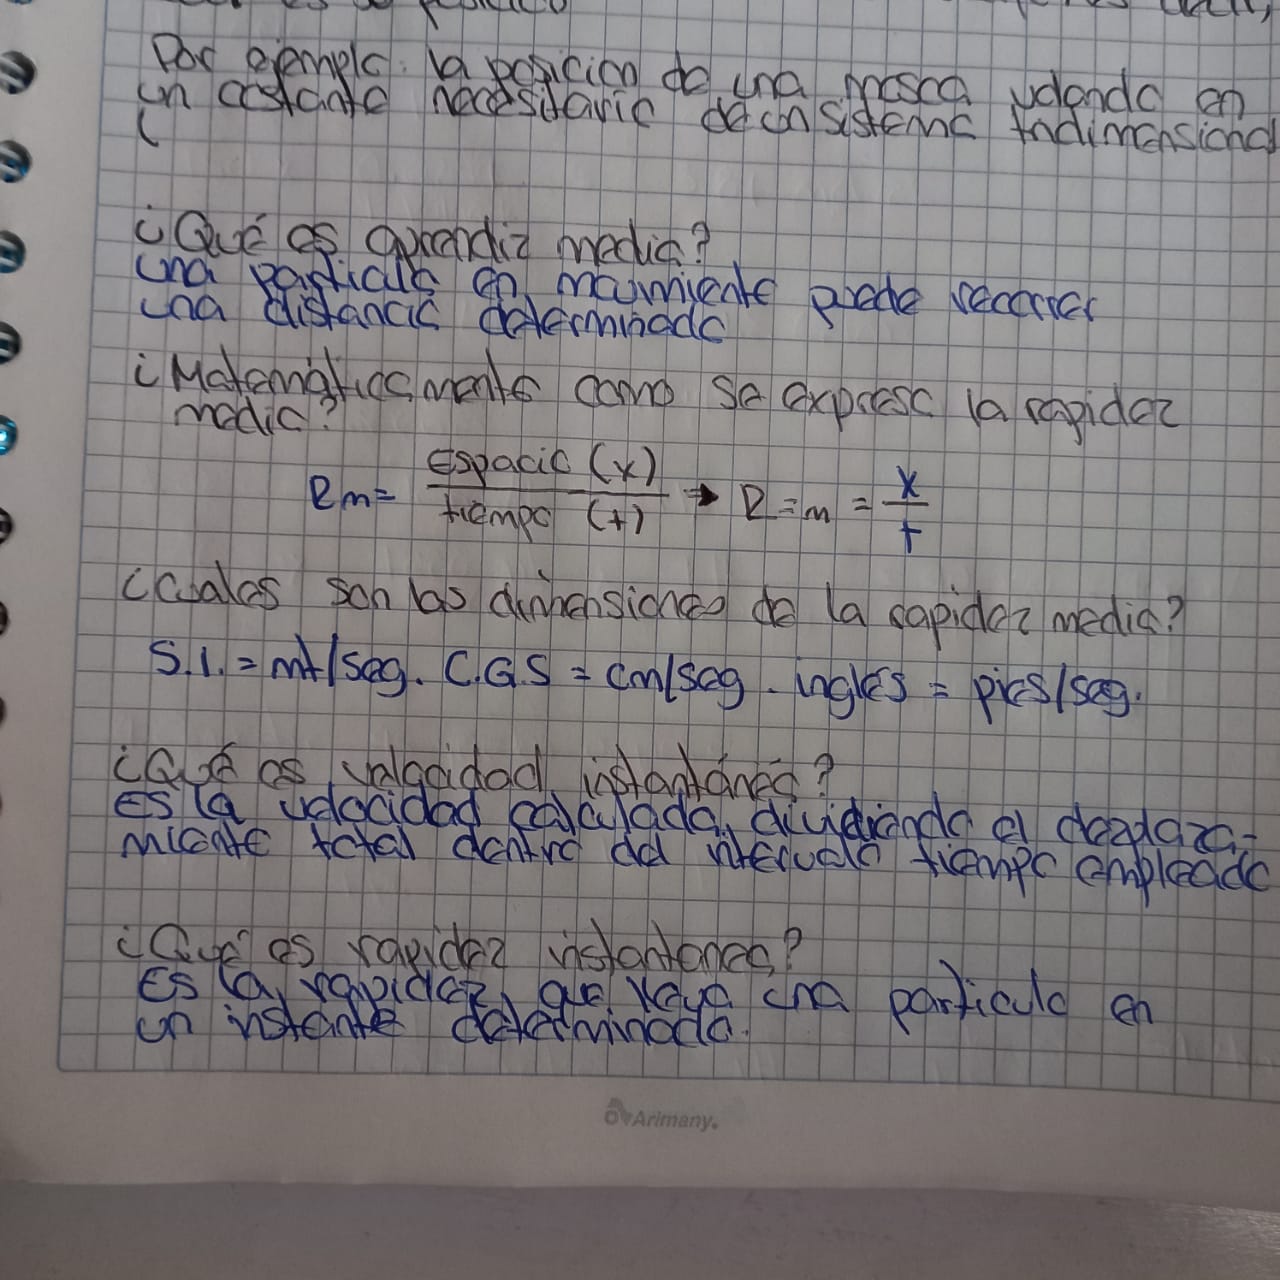 Por ejemplo: la posición de una mosca volando en
un costante necesitaria de un sistema tridimensional
(
¿Qué es aprendiz media?
una particula en movimiento puede recorrer
una distancia determinada
¿Matemáticamente como se expresa la rapidez
media?
Rm= Espacio (x) / tiempo (t) → R=m = x / t
¿Cuales son las dimensiones de la rapidez media?
S.I.= mt/seg. C.G.S = cm/seg. ingles = pies/seg.
¿Qué es velocidad instantánea?
Es la velocidad calculada, dividiendo el dezplaza-
miento total dentro del intervalo tiempo empleado
¿Qué es rapidez instantanea?
Es la rapidez que leva una particula en
un instante determinado.
Arimany.